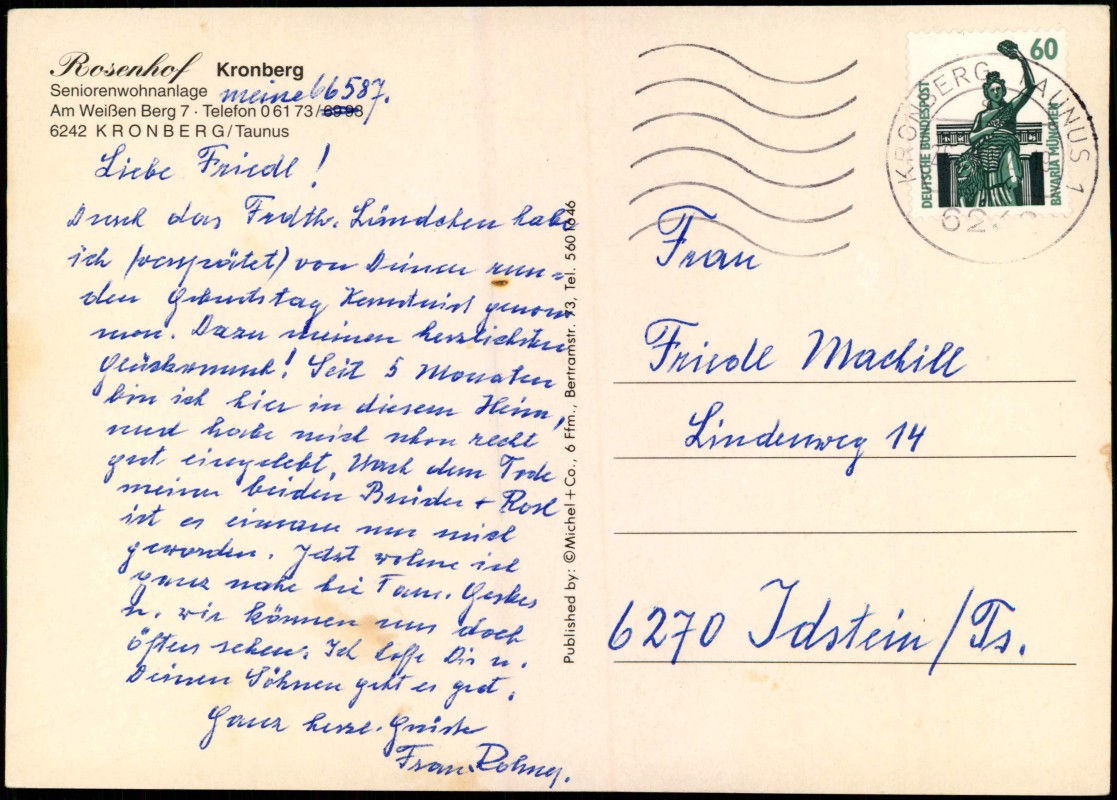 Rosenhof Kronberg
Seniorenwohnanlage
meine 66587.
Am Weißen Berg 7 · Telefon 0 61 73/6993
6242 KRONBERG/Taunus
Liebe Friedl!
Durch das Frdth. Ländchen habe
ich (verspätet) von Deinem run=
den Geburtstag Kenntnis genom
men. Dazu meinen herzlichsten
Glückwunsch! Seit 5 Monaten
bin ich hier in diesem Heim,
und habe mich schon recht
gut eingelebt. Nach dem Tode
meiner beiden Brüder + Rosl
ist es einsam um mich
geworden. Jetzt wohne ich
ganz nahe bei Fam. Gerkes
u. wir können uns doch
öfters sehen. Ich hoffe Dir u.
Deinen Söhnen geht es gut.
Ganz herzl. Grüße
Published by: © Michel + Co., 6 Ffm., Bertramstr. 73, Tel. 5601646
60
DEUTSCHE BUNDESPOST
BAVARIA MÜNCHEN
KRONBERG, TAUNUS 1
Frau
Friedl Machill
Lindenweg 14
6270 Idstein/Ts.